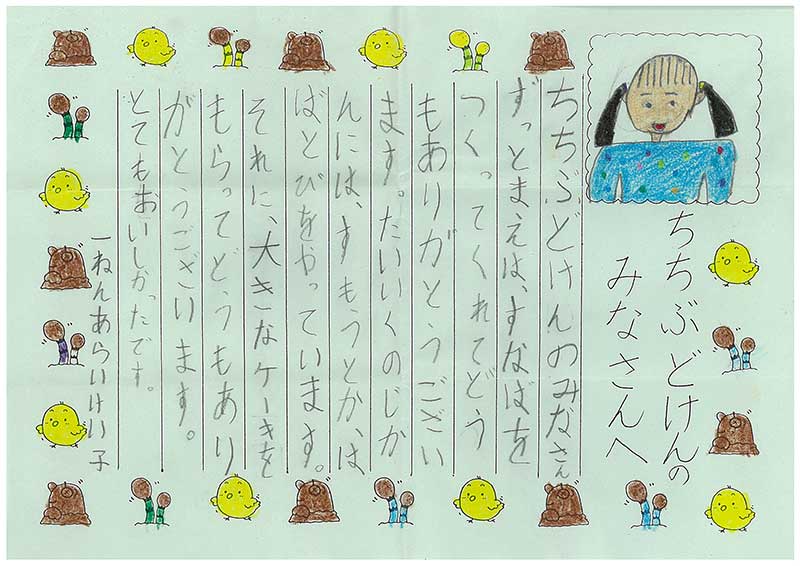 ちちぶどけんの
みなさんへ
ちちぶどけんのみなさん
ずっとまえは、すなばを
つくってくれてどう
もありがとうござい
ます。たいいくのじか
んには、すもうとか、は
ばとびをやっています。
それに、大きなケーキを
もらってどうもあり
がとうございます。
とてもおいしかったです。
一ねんあらいけい子